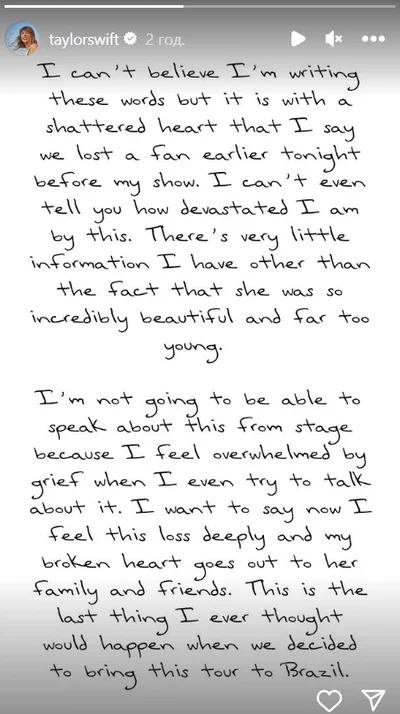 taylorswift 2 год.
I can't believe I'm writing
these words but it is with a
shattered heart that I say
we lost a fan earlier tonight
before my show. I can't even
tell you how devastated I am
by this. There's very little
information I have other than
the fact that she was so
incredibly beautiful and far too
young.
I'm not going to be able to
speak about this from stage
because I feel overwhelmed by
grief when I even try to talk
about it. I want to say now I
feel this loss deeply and my
broken heart goes out to her
family and friends. This is the
last thing I ever thought
would happen when we decided
to bring this tour to Brazil.